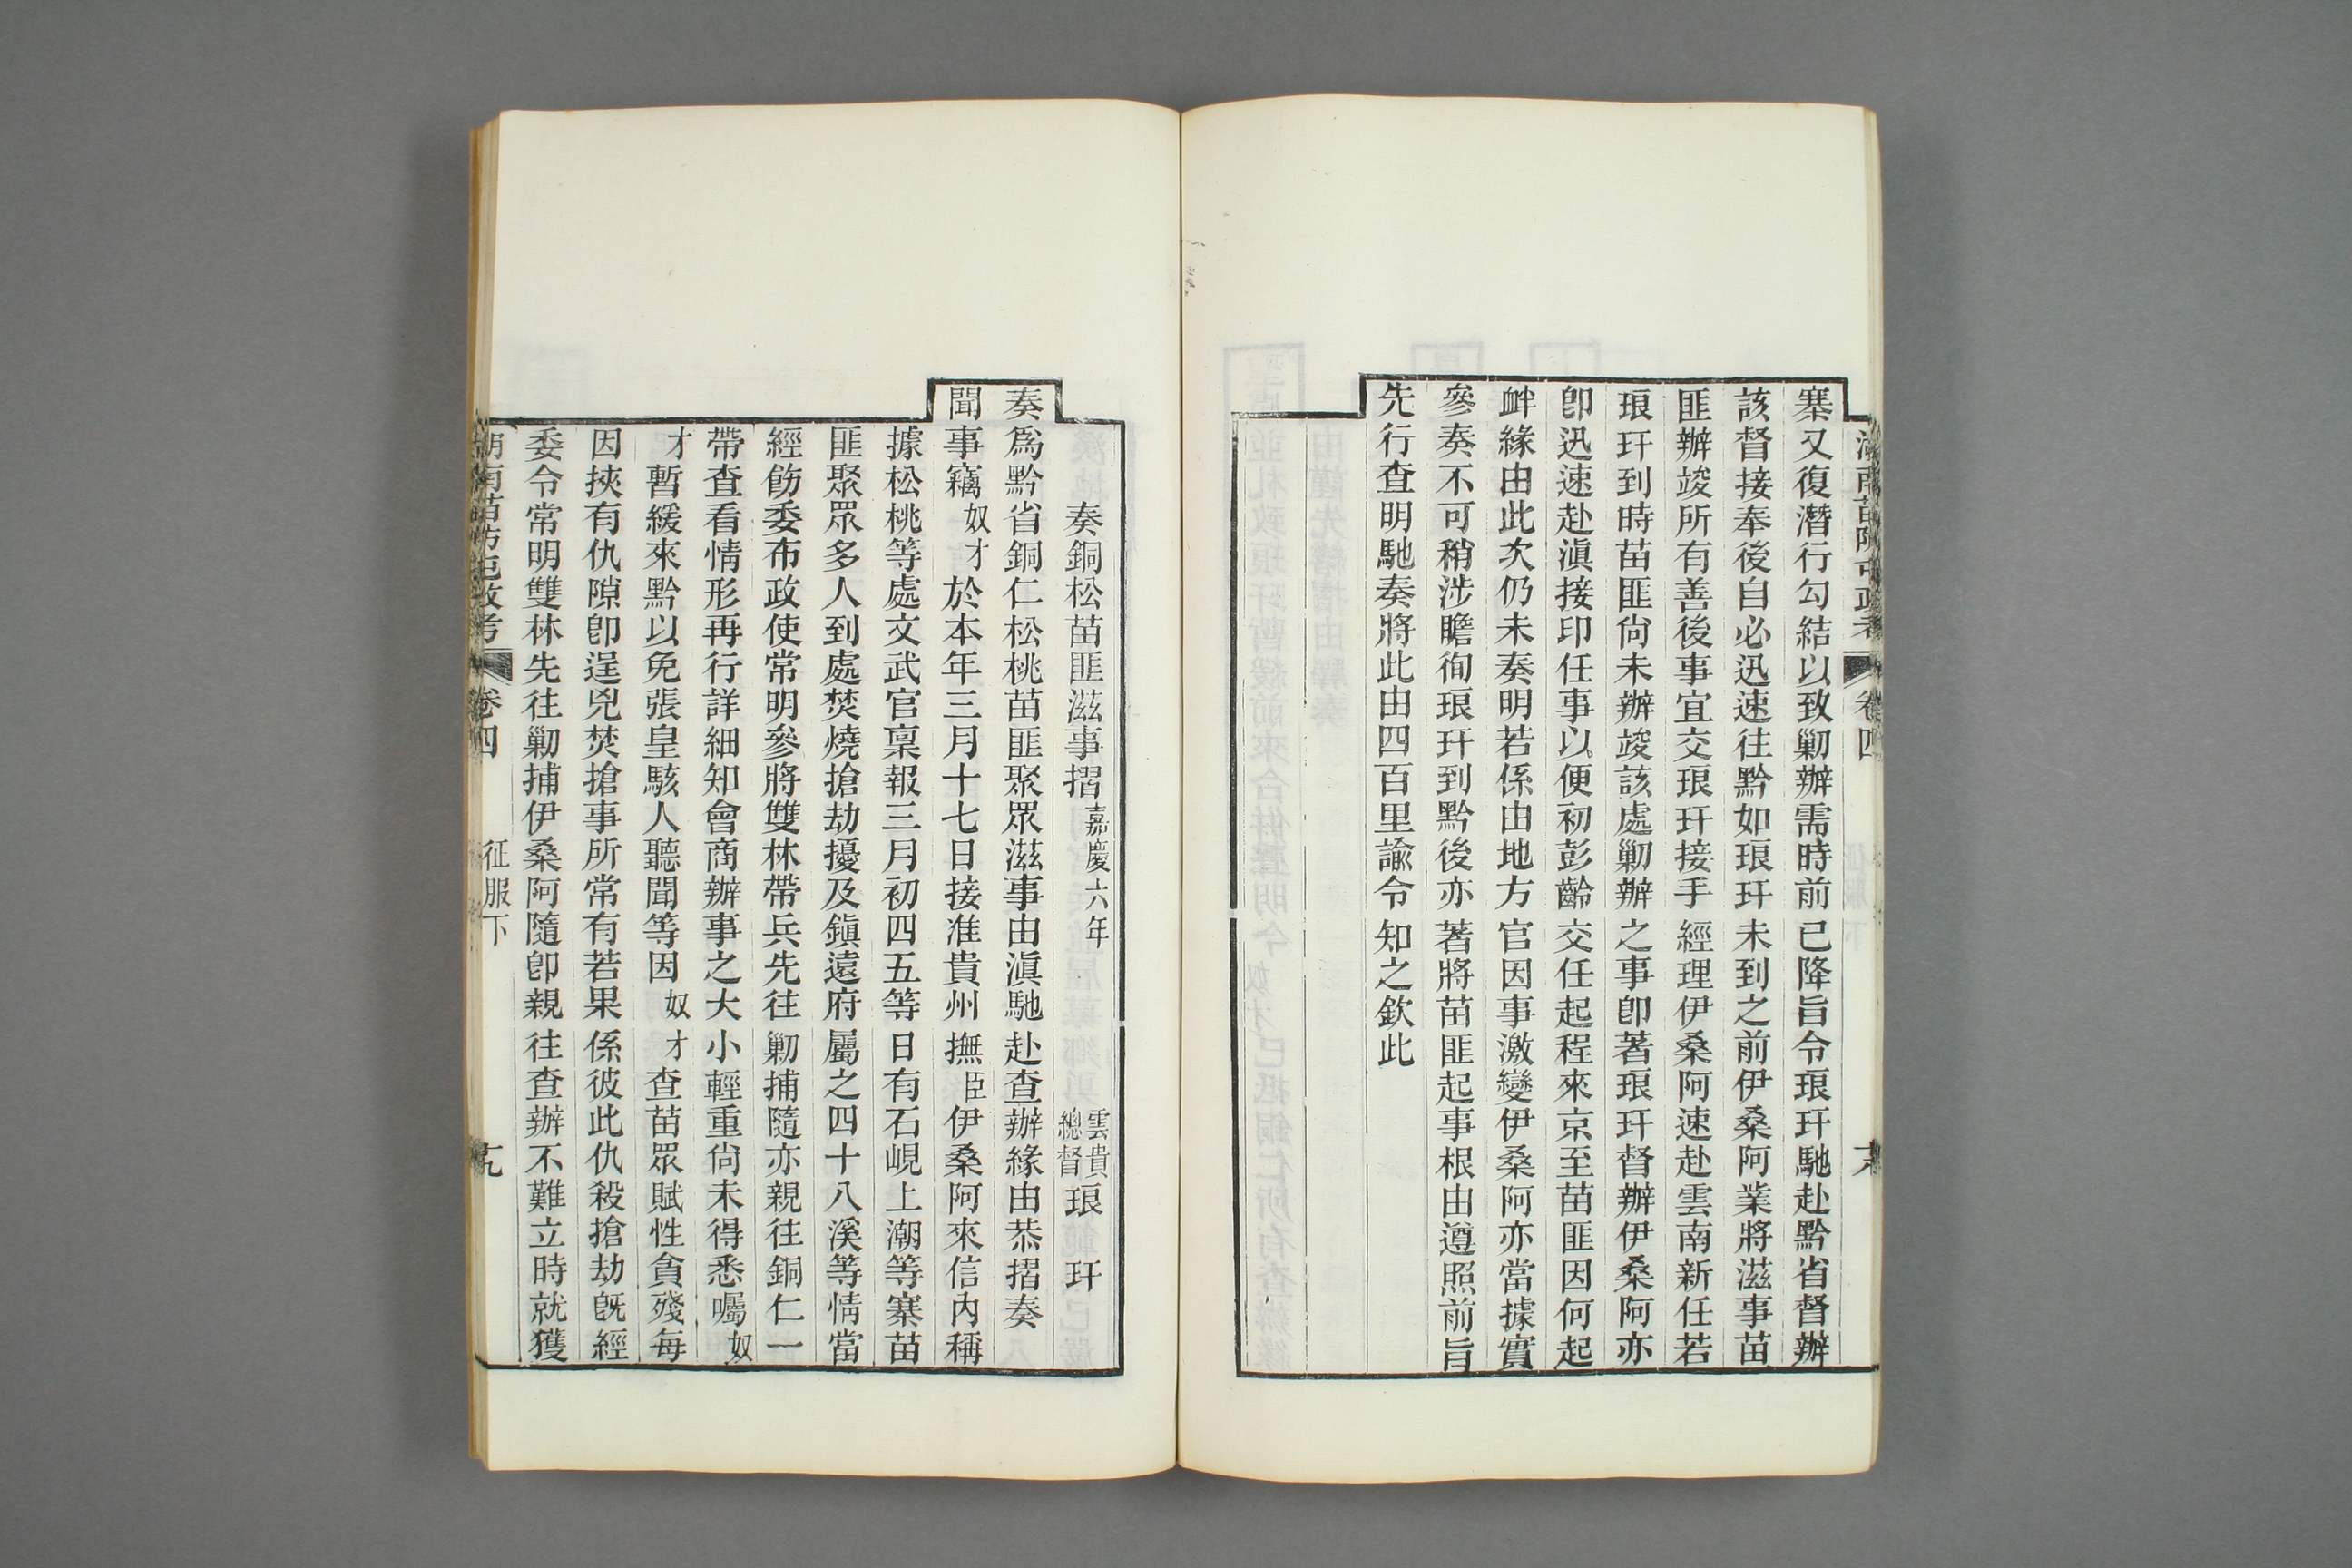 湖南苗防屯政考 卷四
寨又復潛行勾結以致勦辦需時前已降旨令琅玕馳赴黔省督辦
該督接奉後自必迅速往黔如琅玕未到之前伊桑阿業將滋事苗
匪辦竣所有善後事宜交琅玕接手經理伊桑阿速赴雲南新任若
琅玕到時苗匪尙未辦竣該處勦辦之事卽著琅玕督辦伊桑阿亦
卽迅速赴滇接印任事以便初彭齡交任起程來京至苗匪因何起
衅緣由此次仍未奏明若係由地方官因事激變伊桑阿亦當據實
參奏不可稍涉瞻徇琅玕到黔後亦著將苗匪起事根由遵照前旨
先行查明馳奏將此由四百里諭令知之欽此
奏銅松苗匪滋事摺嘉慶六年 雲貴總督琅玕
奏爲黔省銅仁松桃苗匪聚眾滋事由滇馳赴查辦緣由恭摺奏
聞事竊奴才於本年三月十七日接准貴州撫臣伊桑阿來信內稱
據松桃等處文武官稟報三月初四五等日有石峴上潮等寨苗
匪聚眾多人到處焚燒搶劫擾及鎭遠府屬之四十八溪等情當
經飭委布政使常明參將雙林帶兵先往勦捕隨亦親往銅仁一
帶查看情形再行詳細知會商辦事之大小輕重尙未得悉囑奴
才暫緩來黔以免張皇駭人聽聞等因奴才查苗眾賦性貪殘每
因挾有仇隙卽逞兇焚搶事所常有若果係彼此仇殺搶劫旣經
委令常明雙林先往勦捕伊桑阿隨卽親往查辦不難立時就獲
湖南苗防屯政考 卷四 征服下 十九